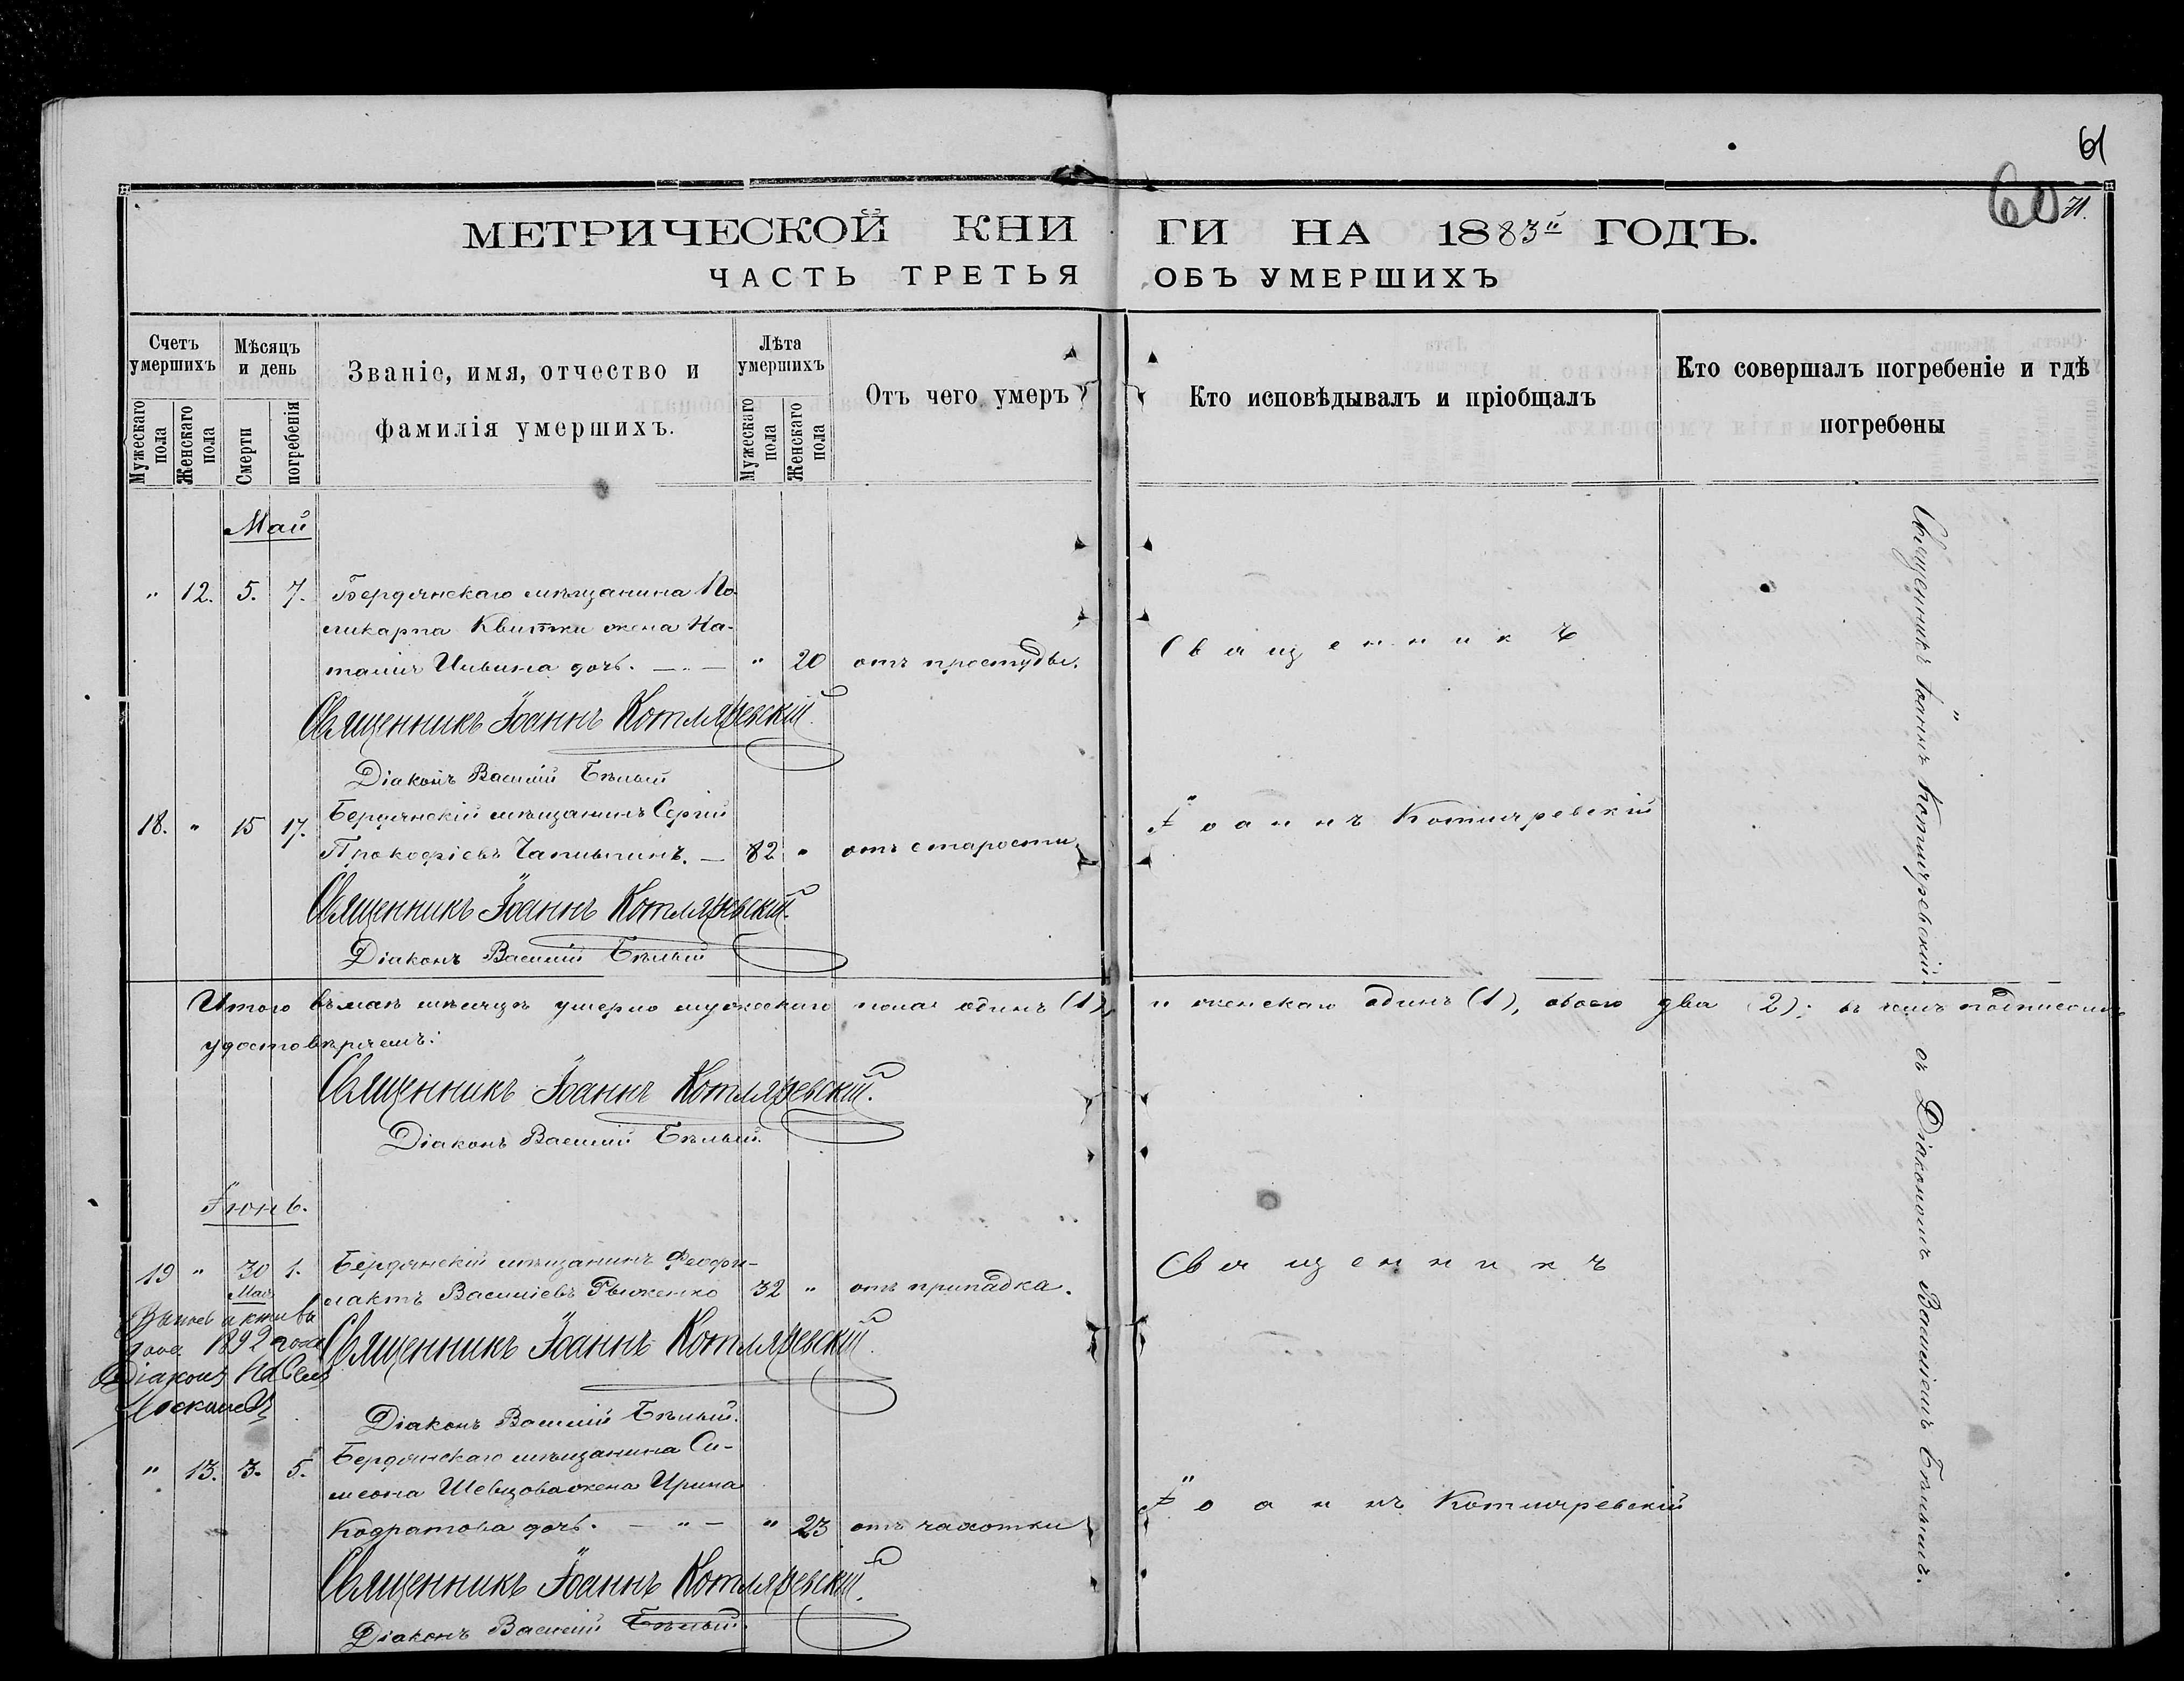 61
60
71.
МЕТРИЧЕСКОЙ КНИГИ НА 1883й ГОДЪ.
ЧАСТЬ ТРЕТЬЯ ОБЪ УМЕРШИХЪ
Счетъ умершихъ
Мужескаго пола
Женскаго пола
Мѣсяцъ и день
Смерти
погребенія
Званіе, имя, отчество и
фамилія умершихъ.
Лѣта умершихъ
Мужескаго пола
Женскаго пола
Отъ чего умеръ
Кто исповѣдывалъ и пріобщалъ
Кто совершалъ погребеніе и гдѣ
погребены
Май
" 12. 5. 7. Бердянскаго мѣщанина По-
ликарпа Квитки жена На-
талія Ильина дочь. — " — " 20 отъ простуды.
Священникъ
Священникъ Іоаннъ Котляревскій
Діаконъ Василій Бѣлый
18. " 15 17. Бердянскій мѣщанинъ Сергій
Прокофіевъ Чаплыгинъ. — 82 " отъ старости.
Іоаннъ Котляревскій
Священникъ Іоаннъ Котляревскій
Діаконъ Василій Бѣлый
Итого въ маѣ мѣсяцѣ умерло мужескаго пола одинъ (1), и женскаго одинъ (1), обоего два (2); въ чемъ подписомъ
удостовѣряемъ:
Священникъ Іоаннъ Котляревскій.
Діаконъ Василій Бѣлый.
Іюнь.
19 " 30 Мая 1. Бердянскій мѣщанинъ Феофи-
лактъ Василіевъ Рыженко 32 " отъ припадка.
Священникъ
1892 года
Діаконъ
Священникъ Іоаннъ Котляревскій.
Діаконъ Василій Бѣлый.
" 13. 3. 5. Бердянскаго мѣщанина Си-
меона Шевцова жена Ирина
Кодратова дочь. — " — " 23 отъ чахотки
Іоаннъ Котляревскій
Священникъ Іоаннъ Котляревскій.
Діаконъ Василій Бѣлый.
Священникъ Іоаннъ Котляревскій съ Діакономъ Василіемъ Бѣлымъ.